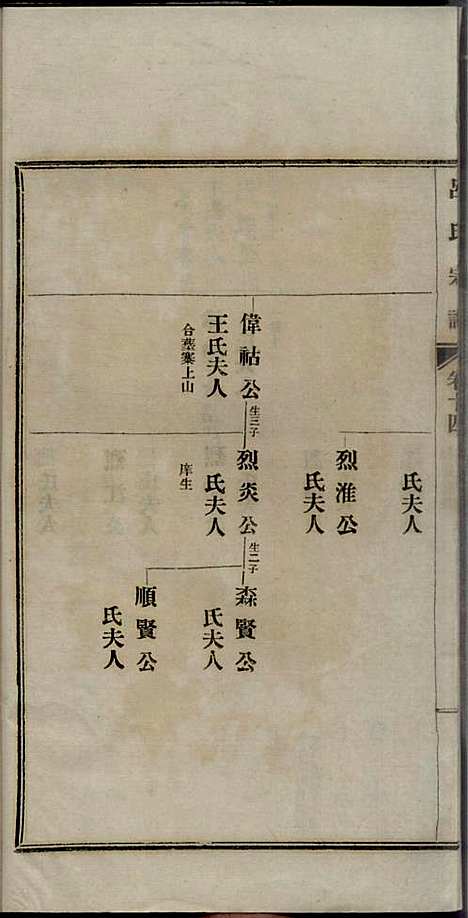 呂氏宗譜
卷十四
氏夫人
烈淮公
氏夫人
偉祜公
生三子
王氏夫人
合墓寨上山
烈炎公
生二子
氏夫人
庠生
森賢公
氏夫人
順賢公
氏夫人